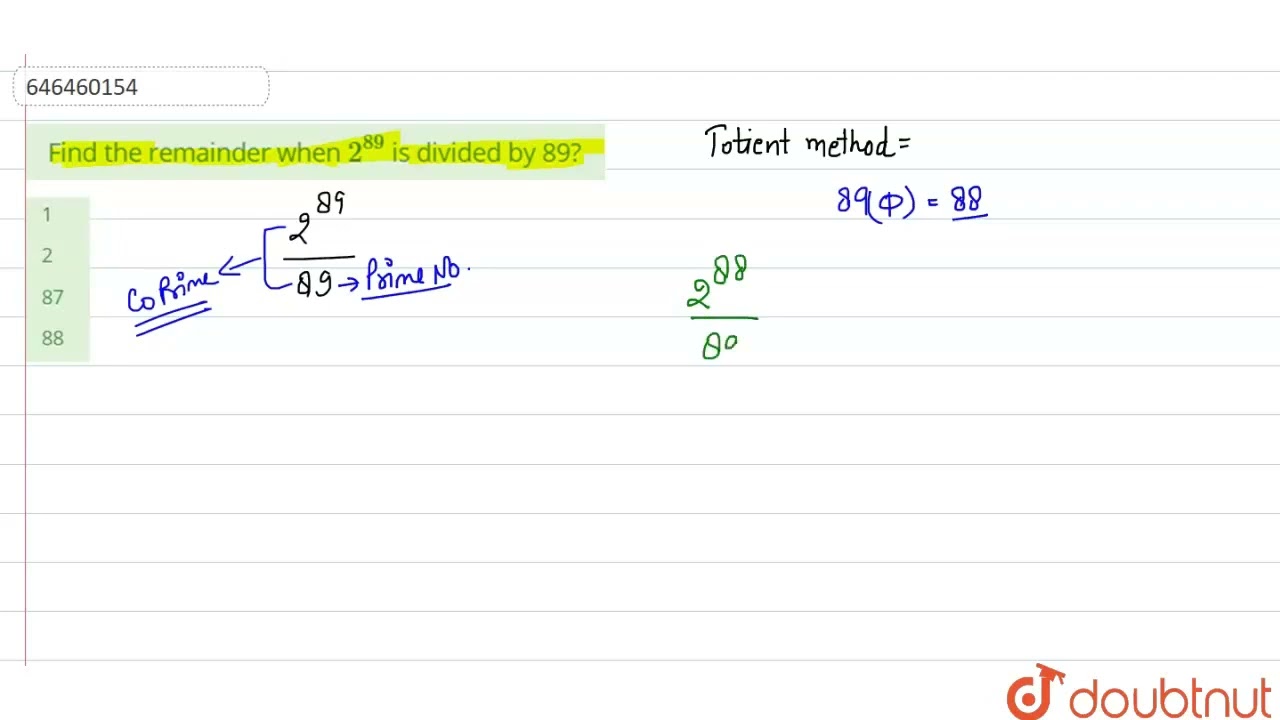 646460154
Find the remainder when 2^89 is divided by 89?
1
2
87
88
2^89
89 → Prime No.
Co Prime
Totient method =
89(φ) = 88
2^88
89
doubtnut